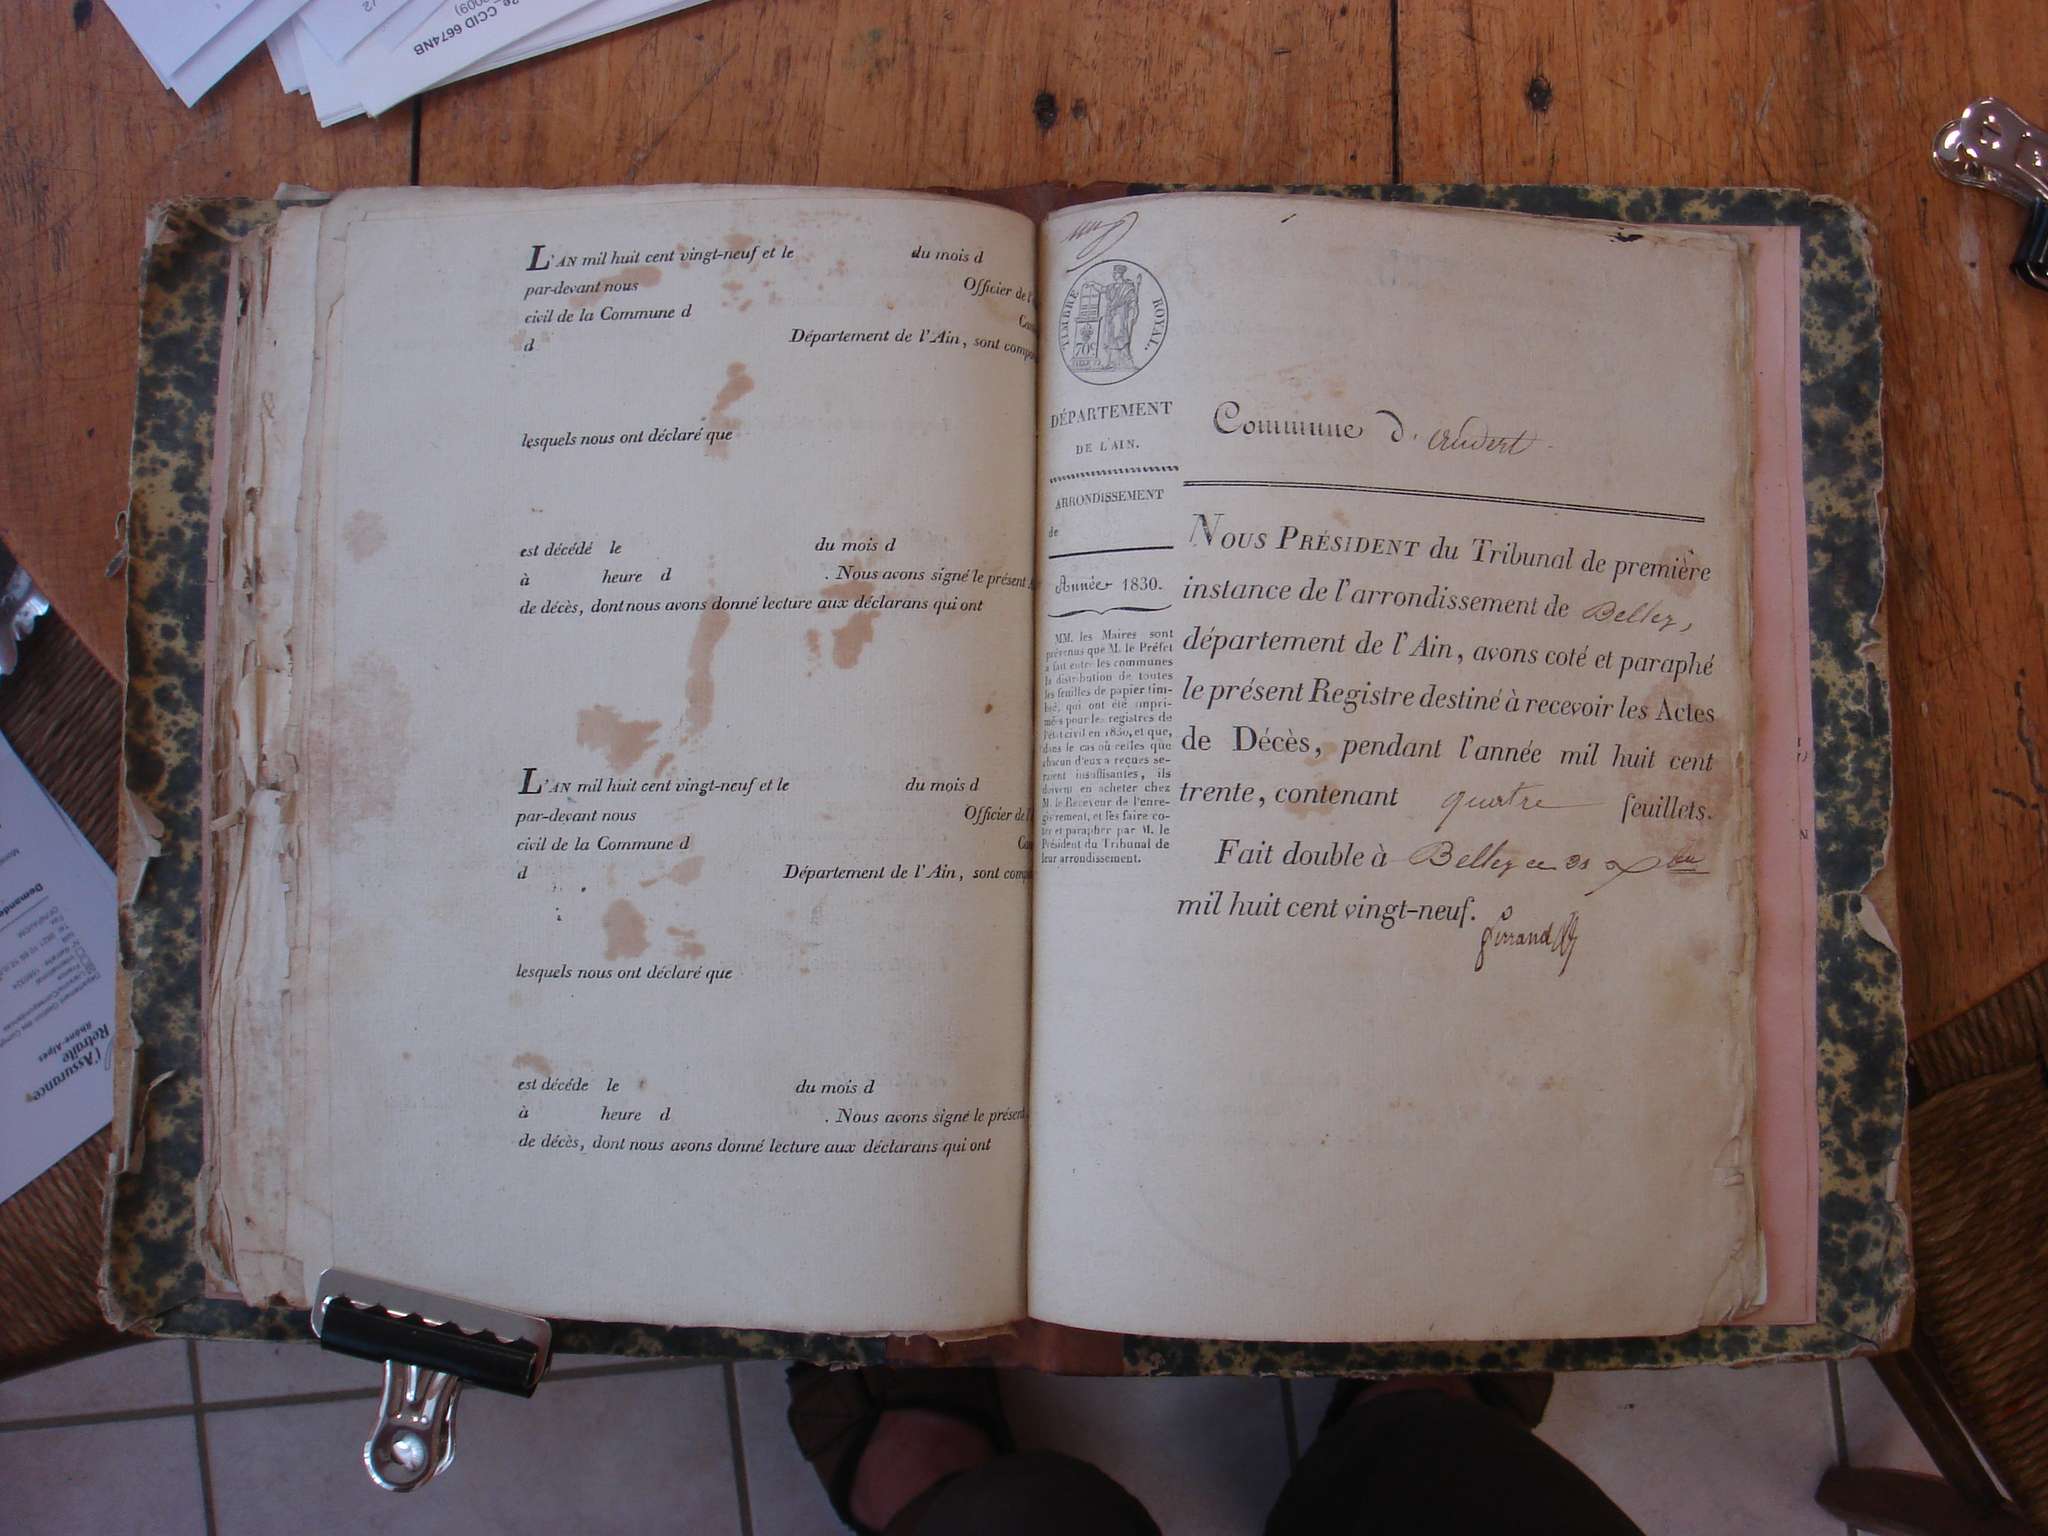 CCID 6674NB
L'AN mil huit cent vingt-neuf et le du mois d
par-devant nous Officier de l'
civil de la Commune d
d Département de l'Ain, sont
lesquels nous ont déclaré que
est décédé le du mois d
à heure d . Nous avons signé le présent
de décès, dont nous avons donné lecture aux déclarans qui ont
L'AN mil huit cent vingt-neuf et le du mois d
par-devant nous Officier de
civil de la Commune d
d Département de l'Ain, sont
lesquels nous ont déclaré que
est décédé le du mois d
à heure d . Nous avons signé le présent
de décès, dont nous avons donné lecture aux déclarans qui ont
TIMBRE ROYAL.
70c
DÉPARTEMENT
DE L'AIN.
ARRONDISSEMENT
de
Année 1830.
MM. les Maires sont
prévenus que M. le Préfet
a fait entre les communes
la distribution de toutes
les feuilles de papier tim-
bré, qui ont été impri-
mées pour les registres de
l'état civil en 1830, et que,
dans le cas où celles que
chacun d'eux a reçues se-
raient insuffisantes, ils
doivent en acheter chez
M. le Receveur de l'enre-
gistrement, et les faire co-
ter et parapher par M. le
Président du Tribunal de
leur arrondissement.
Commune d' andert
NOUS PRÉSIDENT du Tribunal de première
instance de l'arrondissement de Belley,
département de l'Ain, avons coté et paraphé
le présent Registre destiné à recevoir les Actes
de Décès, pendant l'année mil huit cent
trente, contenant quatre feuillets.
Fait double à Belley ce 21 xbre
mil huit cent vingt-neuf.
l'Assurance
Retraite
Rhône-Alpes